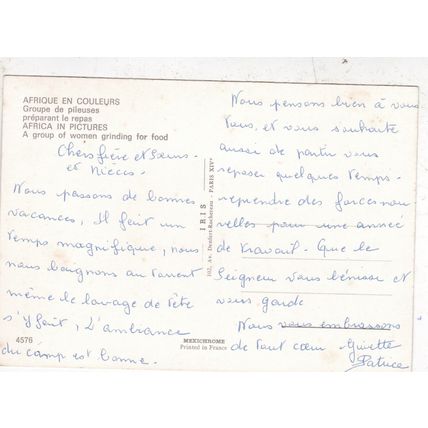 AFRIQUE EN COULEURS
Groupe de pileuses
préparant le repas
AFRICA IN PICTURES
A group of women grinding for food
Chers frère et Sœurs
et Nièces.
Nous passons de bonnes
vacances, Il fait un
temps magnifique, nous
nous baignons
même le lavage de tête
s'y fait, L'ambiance
du camp est bonne.
4576
IRIS
102, Av. Denfert-Rochereau - PARIS XIVe
MEXICHROME
Printed in France
Nous pensons bien à vous
tous, et vous souhaite
aussi de partir vous
reposer quelques temps
reprendre des forces nou
velles pour une année
de travail. Que le
Seigneur vous bénisse et
vous garde
Nous vous embrassons
de tout cœur Ginette
Patrice